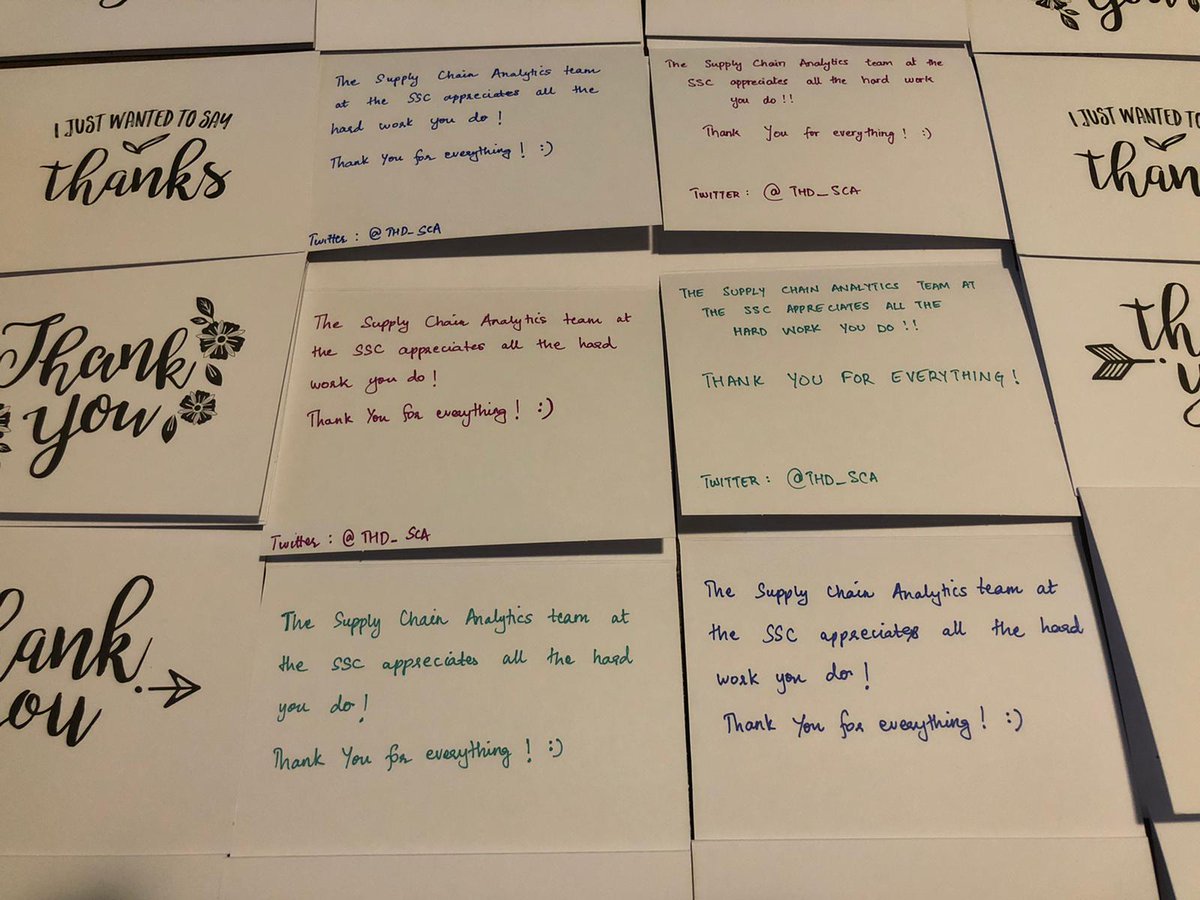 I JUST WANTED TO SAY
thanks
The Supply Chain Analytics team
at the SSC appreciates all the
hard work you do!
Thank You for everything! :)
Twitter : @THD_SCA
The Supply Chain Analytics team at the
SSC appreciates all the hard work
you do!!
Thank You for everything! :)
TWITTER : @ THD_SCA
I JUST WANTED TO
than
Thank
you
The Supply Chain Analytics team at
the SSC appreciates all the hard
work you do!
Thank You for everything! :)
Twitter : @ THD_ SCA
THE SUPPLY CHAIN ANALYTICS TEAM AT
THE SSC APPRECIATES ALL THE
HARD WORK YOU DO!!
THANK YOU FOR EVERYTHING!
TWITTER : @THD_SCA
th
y
hank
ou
The Supply Chain Analytics team at
the SSC appreciates all the hard
you do!
Thank You for everything! :)
The Supply Chain Analytics team at
the SSC appreciates all the hard
work you do!
Thank You for everything! :)